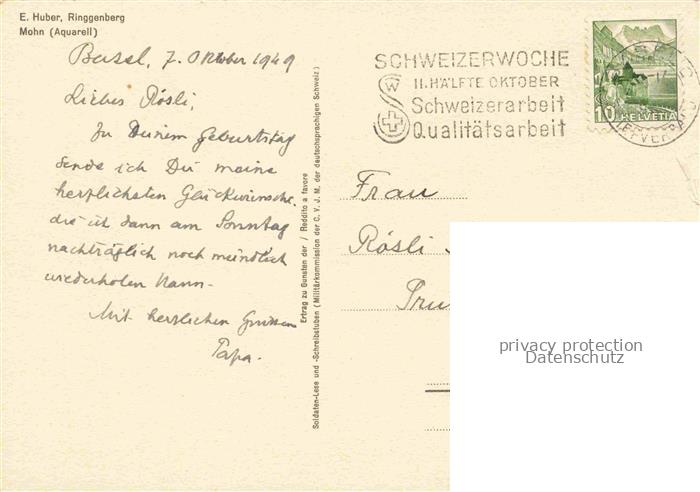 E. Huber, Ringgenberg
Mohn (Aquarell)
Basel, 7. Oktober 1949
Liebes Rösli,
Zu Deinem Geburtstag
sende ich Dir meine
herzlichsten Glückwünsche,
die ich dann am Sonntag
nachträglich noch mündlich
wiederholen kann.
Mit herzlichen Grüssen
Papa.
Soldaten-Lese und -Schreibstuben (Militärkommission der C. V. J. M. der deutschsprachigen Schweiz)
Ertrag zu Gunsten der / Reddito a favore
SCHWEIZERWOCHE
II. HÄLFTE OKTOBER
Schweizerarbeit
Qualitätsarbeit
W
10 HELVETIA
Frau
Rösli
privacy protection
Datenschutz